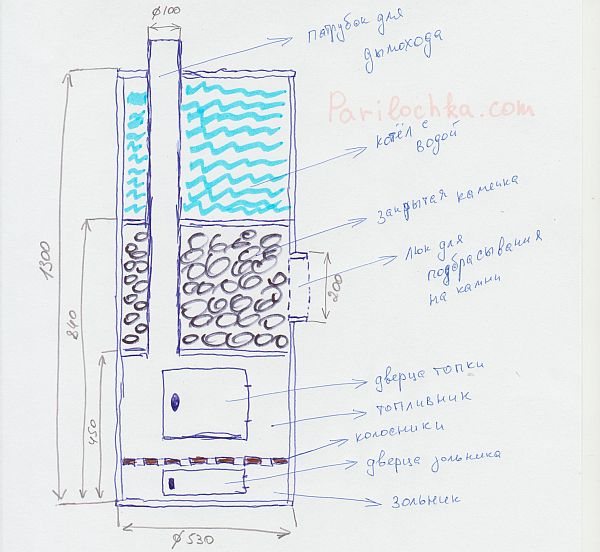 ø100
патрубок для
дымохода
Parilochka.com
котёл с
водой
закрытая каменка
люк для
подбрасывания
на камни
200
1300
840
450
дверца топки
топливник
колосники
дверца зольника
зольник
ø530